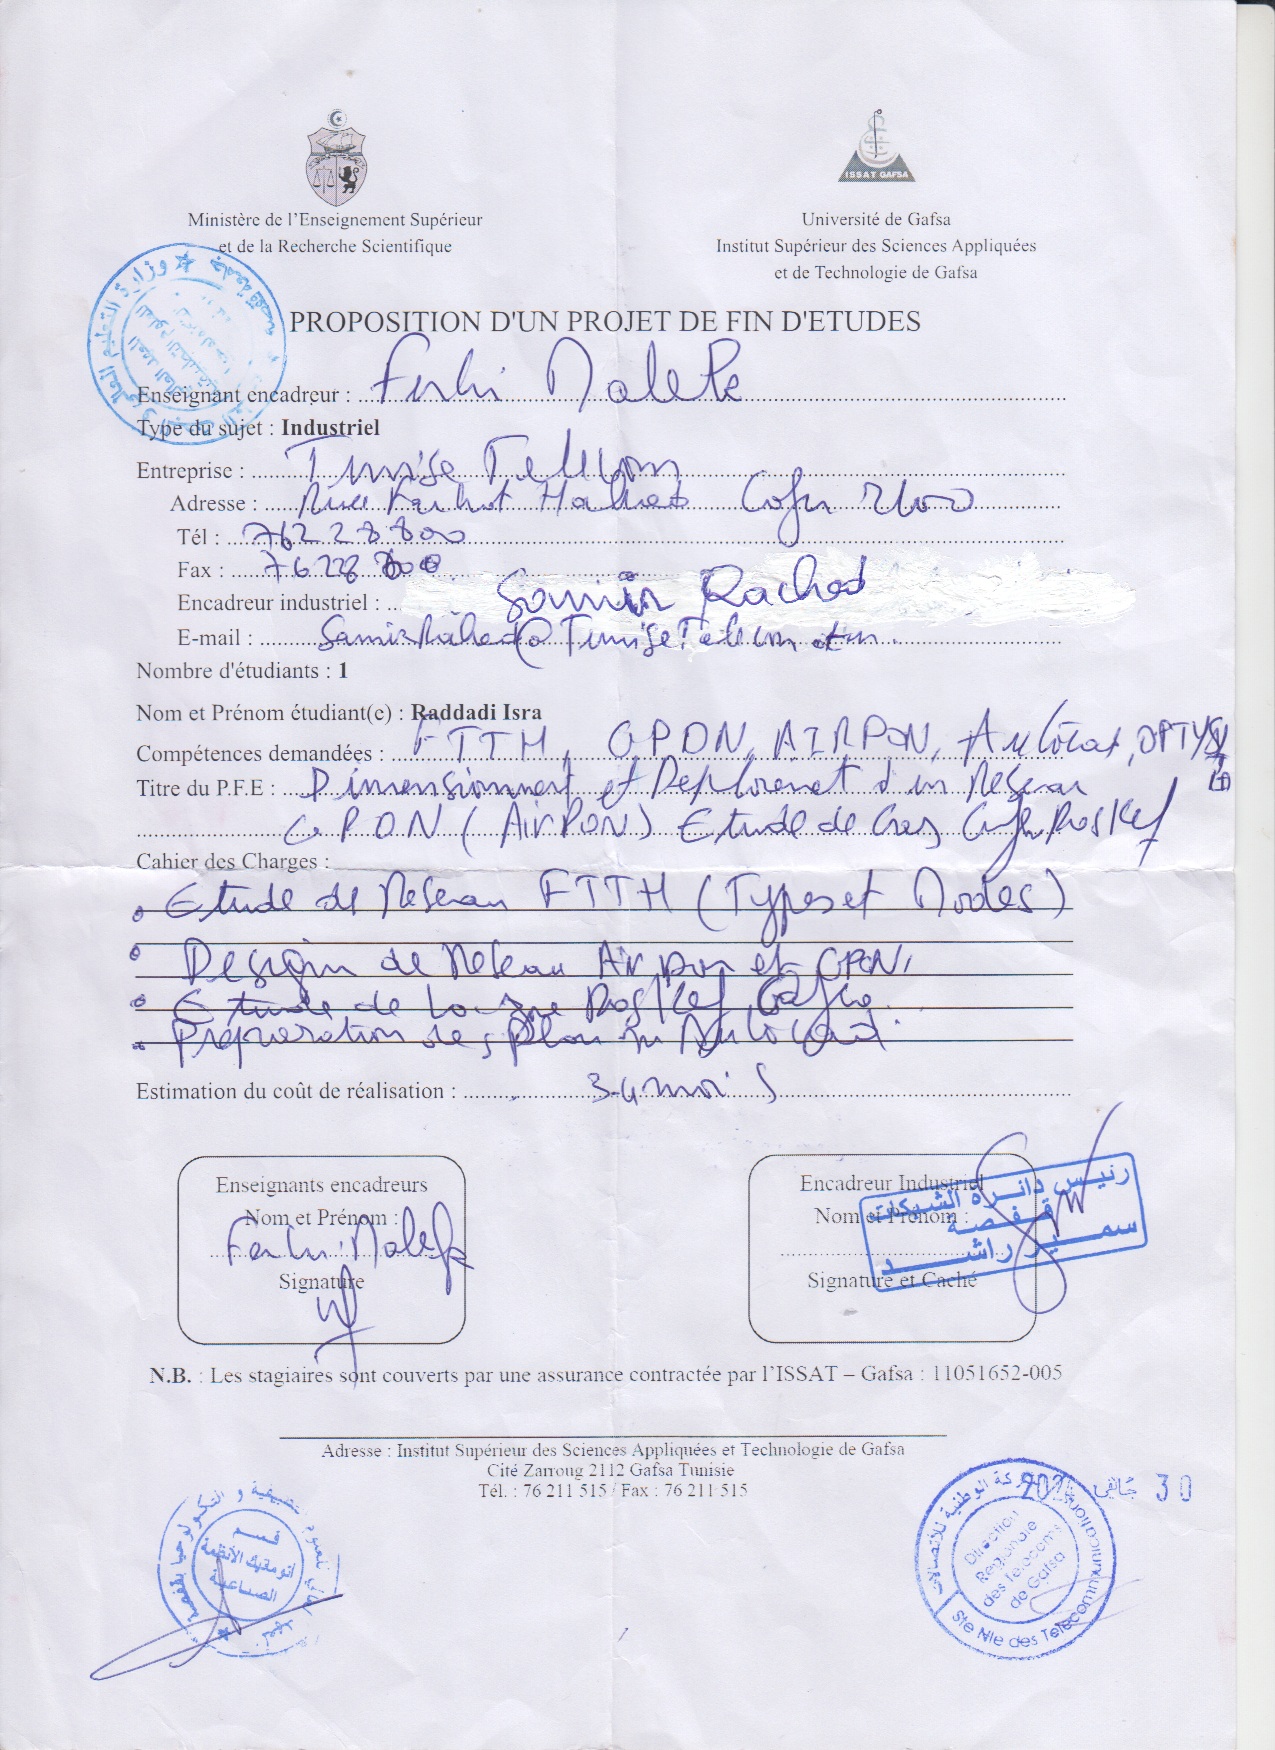 ISSAT GAFSA
Ministère de l'Enseignement Supérieur
et de la Recherche Scientifique
Université de Gafsa
Institut Supérieur des Sciences Appliquées
et de Technologie de Gafsa
وزارة التعليم العالي
PROPOSITION D'UN PROJET DE FIN D'ETUDES
Enseignant encadreur : Ferhi Malek
Type du sujet : Industriel
Entreprise : Tunisie Telecom
Adresse : Rue Farhat Hached Gafsa 2100
Tél : 76228800
Fax : 76228
Encadreur industriel : Samir Rached
E-mail :
Nombre d'étudiants : 1
Nom et Prénom étudiant(e) : Raddadi Isra
Compétences demandées : FTTH, GPON, AIRPON, Autocad,
Titre du P.F.E : Dimensionnement et Deploiement d'un Reseau
GPON (AirPON) Etude de Cas Gafsa Ras Kef
Cahier des Charges :
Etude de Reseau FTTH (Types et Modes)
Design de Reseau Airpon et GPON,
Etude de la zone Ras Kef Gafsa.
Préparation des plan Autocad.
Estimation du coût de réalisation : 3-4 mois
Enseignants encadreurs
Nom et Prénom :
Ferhi Malek
Signature
Encadreur Industriel
Nom et Prénom :
Signature et Caché
رئيس دائرة الشبكات
قفصة
سمير راشد
N.B. : Les stagiaires sont couverts par une assurance contractée par l'ISSAT – Gafsa : 11051652-005
Adresse : Institut Supérieur des Sciences Appliquées et Technologie de Gafsa
Cité Zarroug 2112 Gafsa Tunisie
Tél. : 76 211 515 / Fax : 76 211 515
قسم
أتوماتيك الأنظمة
الصناعية
30 جانفي
Direction
Regionale
des Telecoms
de Gafsa
Ste Nle des Telecommunications